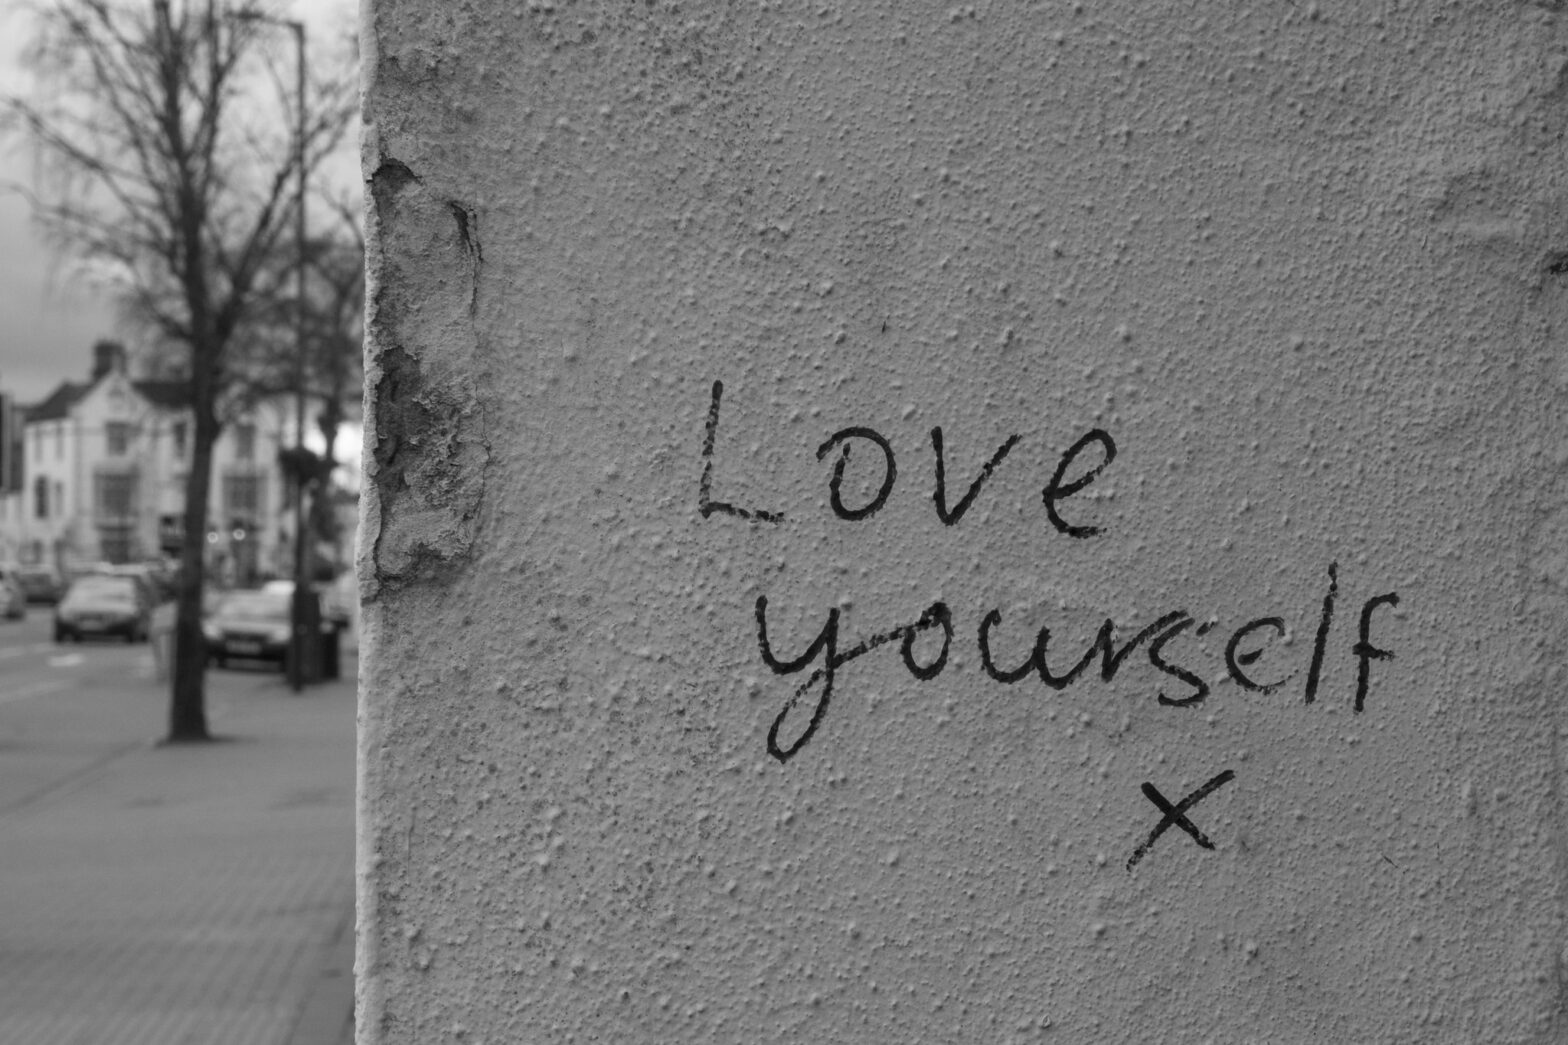 Love
yourself
x